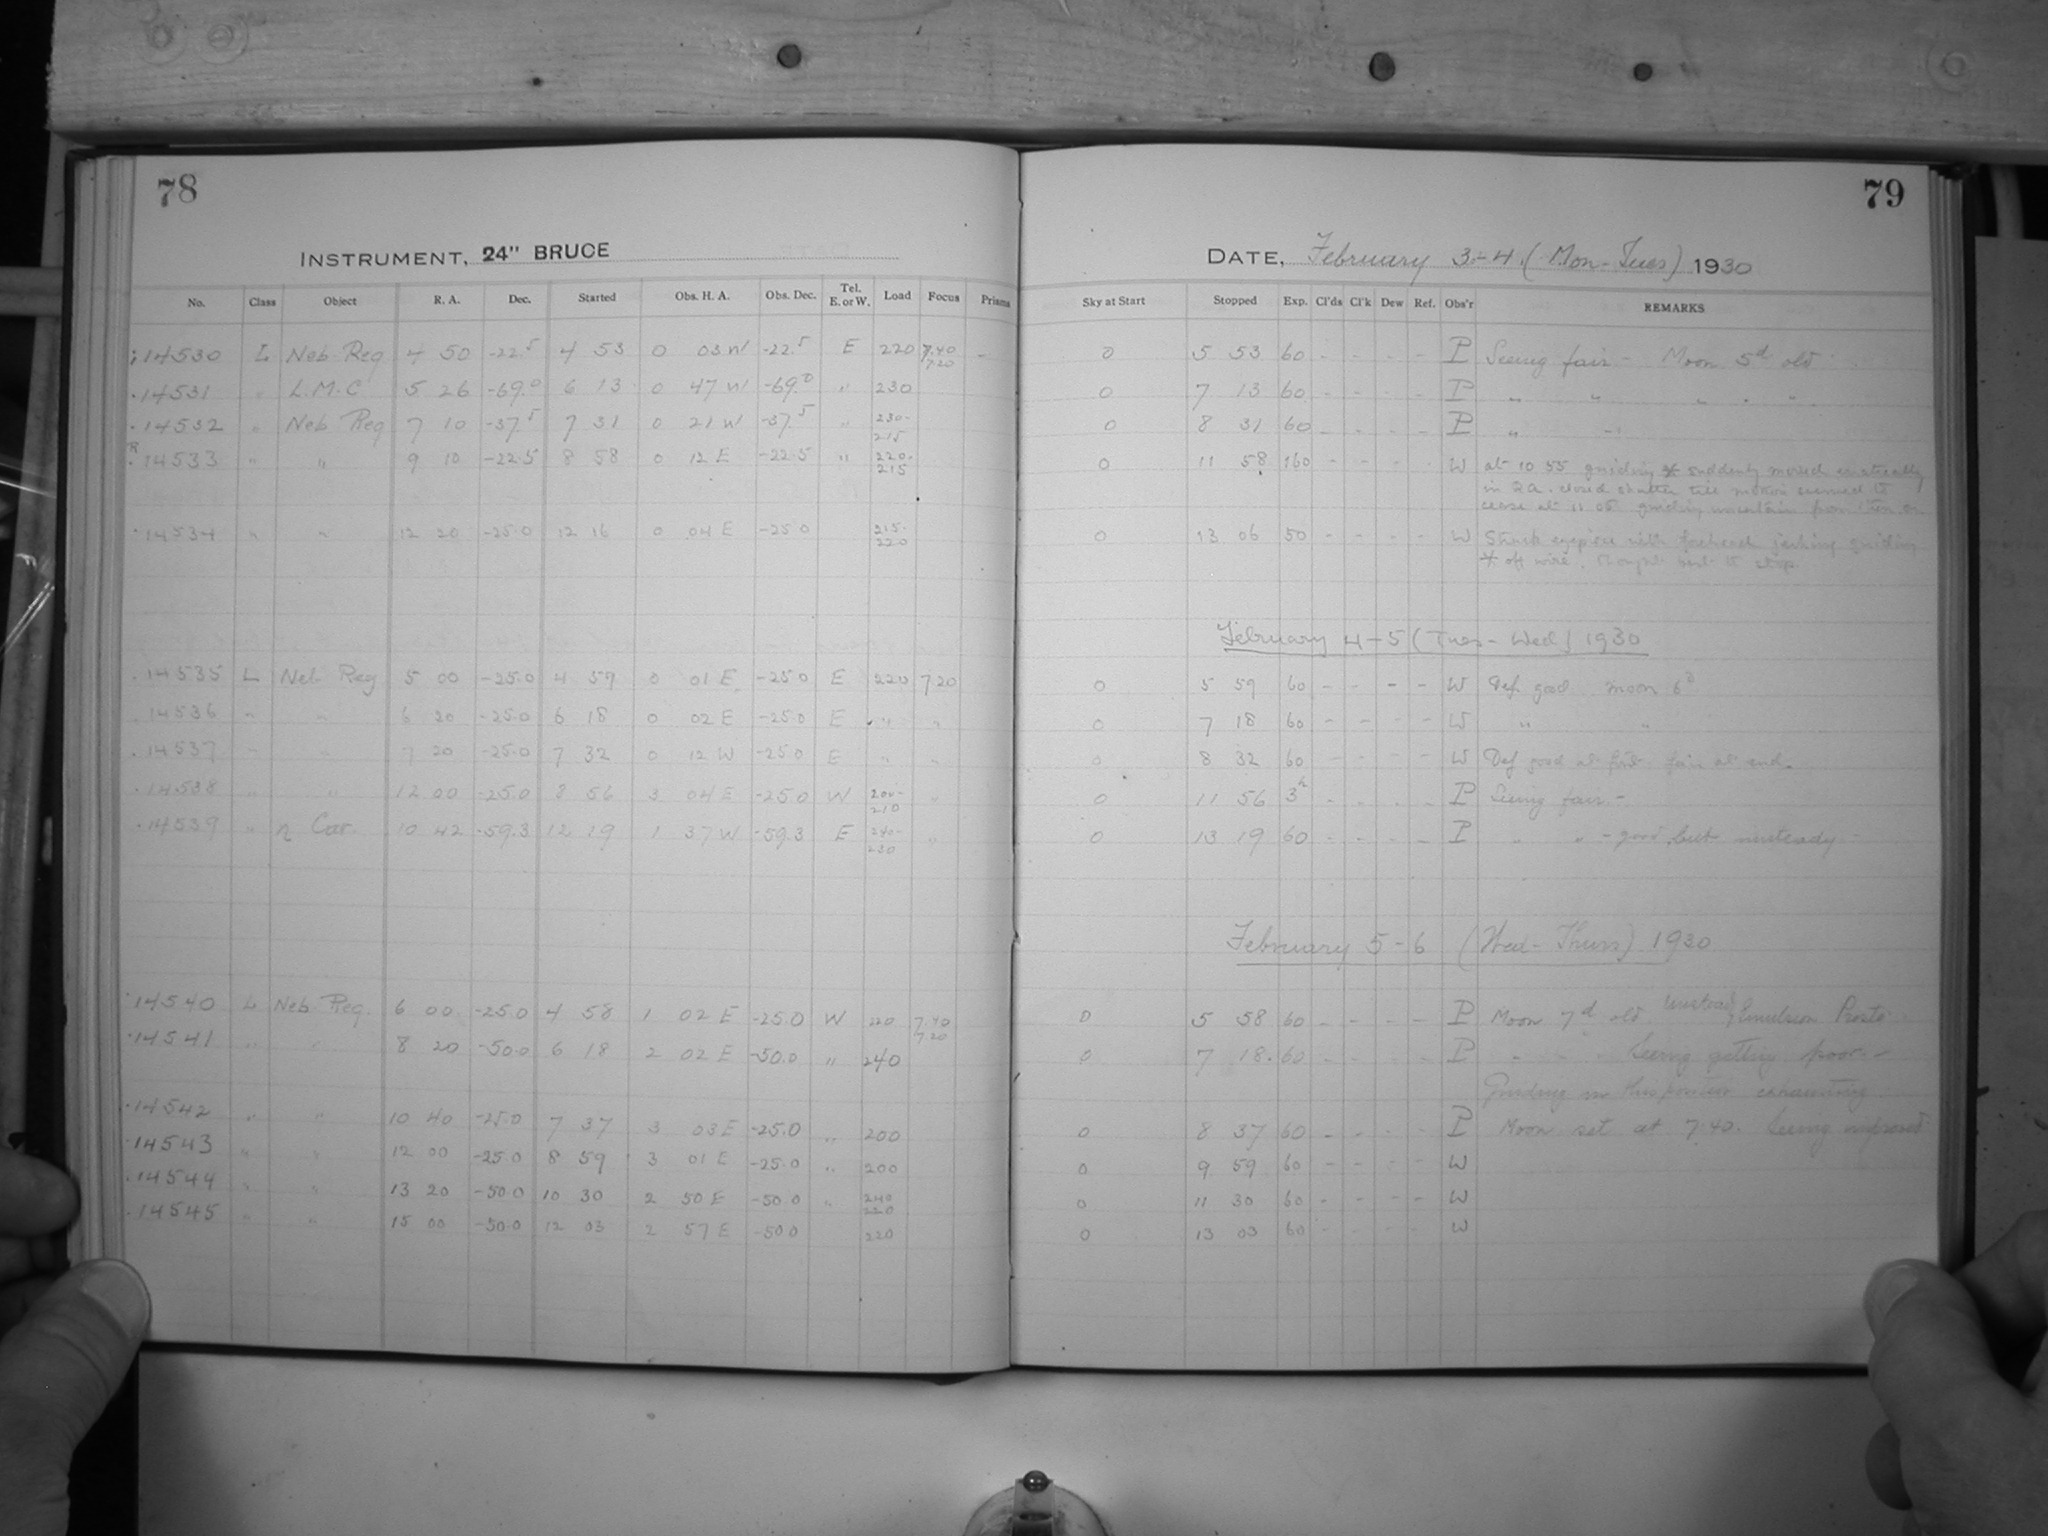 78
INSTRUMENT, 24" BRUCE
No. Class Object R. A. Dec. Started Obs. H. A. Obs. Dec. Tel. E. or W. Load Focus Prisms
14530 L Neb Reg 4 50 -22.5 4 53 0 03 W -22.5 E 220 7.40 -
7.20
14531 " L.M.C 5 26 -69.0 6 13 0 47 W -69.0 " 230
14532 " Neb Reg 7 10 -37.5 7 31 0 21 W -37.5 " 230-
215
R 14533 " " 9 10 -22.5 8 58 0 12 E -22.5 " 220-
215
14534 " " 12 20 -25.0 12 16 0 04 E -25.0 215-
220
14535 L Neb Reg 5 00 -25.0 4 59 0 01 E -25.0 E 220 7.20
14536 " " 6 20 -25.0 6 18 0 02 E -25.0 E " "
14537 " " 7 20 -25.0 7 32 0 12 W -25.0 E " "
14538 " " 12 00 -25.0 8 56 3 04 E -25.0 W 200- "
210
14539 " η Car. 10 42 -59.3 12 19 1 37 W -59.3 E 240- "
230
14540 L Neb Reg. 6 00 -25.0 4 58 1 02 E -25.0 W 220 7.40
7.20
14541 " " 8 20 -50.0 6 18 2 02 E -50.0 " 240
14542 " " 10 40 -25.0 7 37 3 03 E -25.0 " 200
14543 " " 12 00 -25.0 8 59 3 01 E -25.0 " 200
14544 " " 13 20 -50.0 10 30 2 50 E -50.0 " 240
220
14545 " " 15 00 -50.0 12 03 2 57 E -50.0 220
79
DATE, February 3-4 (Mon-Tues) 1930
Sky at Start Stopped Exp. Cl'ds Cl'k Dew Ref. Obs'r REMARKS
0 5 53 60 - - - - P Seeing fair - Moon 5d old
0 7 13 60 - - - - P " " " " "
0 8 31 60 - - - - P " "
0 11 58 160 - - - - W at 10 55 guiding * suddenly moved erratically
in RA. closed shutter till motion seemed to
cease at 11 05 guiding uncertain from then on
0 13 06 50 - - - - W Struck eyepiece with forehead jerking guiding
* off wire. Thought best to stop.
February 4-5 (Tues-Wed) 1930
0 5 59 60 - - - - W Def. good moon 6d
0 7 18 60 - - - - W " "
0 8 32 60 - - - - W Def good at first fair at end.
0 11 56 3h - - - - P Seeing fair -
0 13 19 60 - - - - P " " - good, but unsteady -
February 5-6 (Wed-Thurs) 1930
0 5 58 60 - - - - P Moon 7d old Unsteady Emulsion Presto
0 7 18 60 - - - - P " " Seeing getting poor -
Guiding in this position exhausting
0 8 37 60 - - - - P Moon set at 7.40. Seeing improved
0 9 59 60 - - - - W
0 11 30 60 - - - - W
0 13 03 60 - - - - W